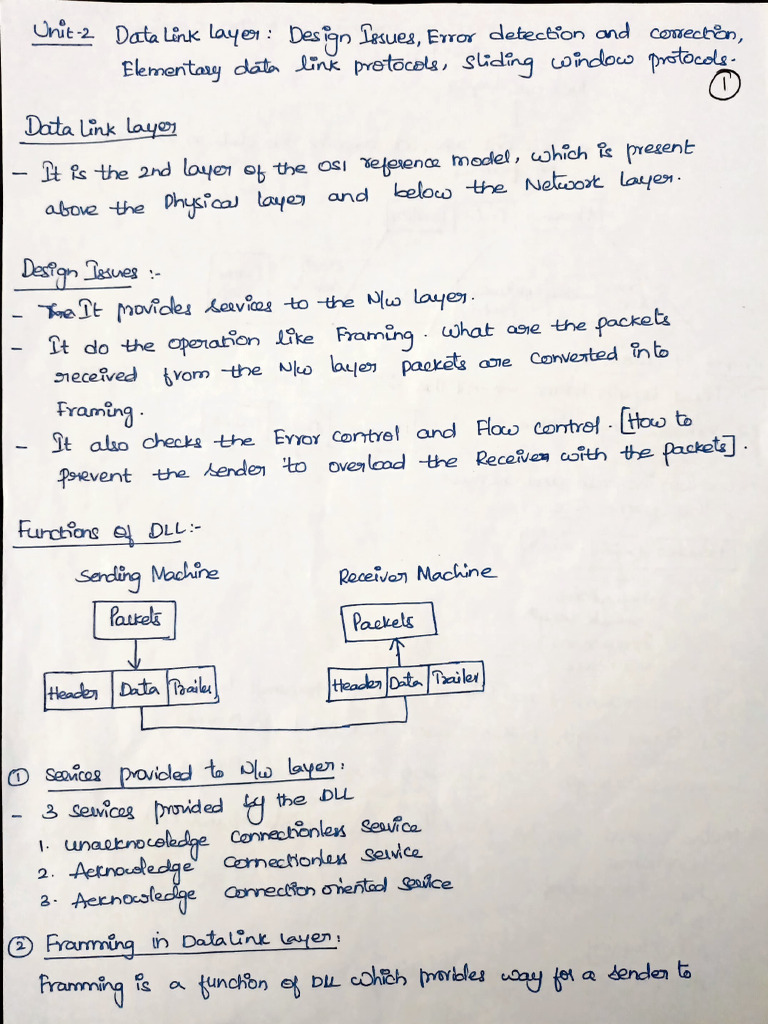 Unit-2 Data Link layer: Design Issues, Error detection and correction,
Elementary data link protocols, sliding window protocols.
1
Data Link layer
- It is the 2nd layer of the OSI reference model, which is present
above the Physical layer and below the Network layer.
Design Issues :-
- It provides services to the N/w layer.
- It do the operation like Framing. What are the packets
received from the N/w layer packets are converted into
Framing.
- It also checks the Error control and Flow control. [How to
prevent the sender to overload the Receiver with the packets].
Functions of DLL:-
Sending Machine Receiver Machine
Packets Packets
Header Data Trailer Header Data Trailer
1 Services provided to N/w layer:
- 3 services provided by the DLL
1. unacknowledge connectionless service
2. Acknowledge connectionless service
3. Acknowledge connection oriented service
2 Framming in Data Link layer:
Framming is a function of DLL which provides way for a sender to